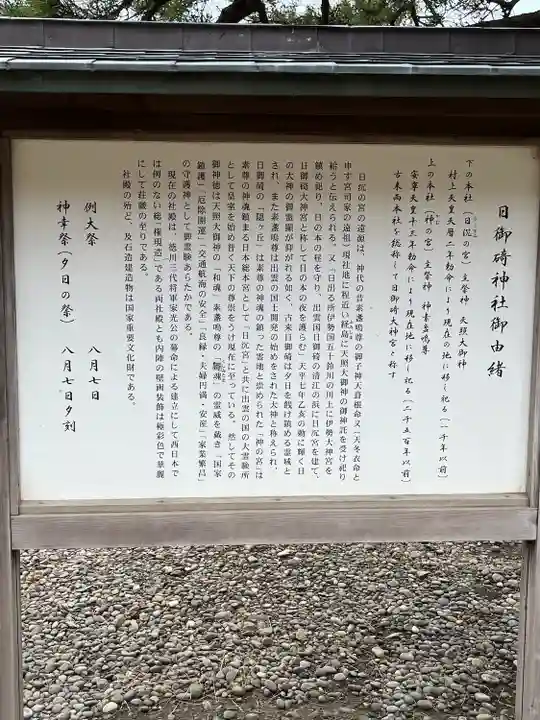 日御碕神社御由緒
下の本社（日沉の宮）主祭神 天照大御神
村上天皇天暦二年勅命により現在の地に移し祀る（一千年以前）
上の本社（神の宮）主祭神 神素盞嗚尊
安寧天皇十三年勅命により現在地に移し祀る（二千五百年以前）
古来両本社を総称して日御碕大神宮と称す
日沉の宮の遠源は、神代の昔素盞嗚尊の御子神天葺根命又（天冬衣命と
申す宮司家の遠祖）現社地に程近い経島に天照大御神の御神託を受け祀り
給うと伝えられる。又「日出る所伊勢国五十鈴川の川上に伊勢大神宮を
鎮め祀り、日の本の昼を守り、出雲国日御碕の清江の浜に日沉宮を建て、
日御碕大神宮と称して日の本の夜を護らむ」天平七年乙亥の勅に輝く日
の大神の御霊顕が仰がれる如く、古来日御碕は夕日を餞け鎮める霊域と
され、また素盞嗚尊は出雲の国土開発の始めをされた大神と称えられ、
日御碕の「隠ヶ丘」は素尊の神魂の鎮った霊地と崇められた「神の宮」は
素尊の神魂鎮まる日本総本宮として「日沉宮」と共に出雲の国の大霊験所
として皇室を始め普く天下の尊崇をうけ現在に至っている。然してその
御神徳は天照大御神の「和魂」素盞嗚尊の「」の霊威を戴き「国家
鎮護」「厄除開運」「交通航海の安全」「良縁・夫婦円満・安産」「家業繁昌」
の守護神として御霊験あらたかである。
現在の社殿は、徳川三代将軍家光公の幕命による建立にして西日本で
は例のない総「権現造」である両社殿とも内陣の壁画装飾は極彩色で華麗
にして荘厳の至りである。
社殿の殆ど、及石造建造物は国家重要文化財である。
例大祭 八月七日
神幸祭（夕日の祭） 八月七日夕刻